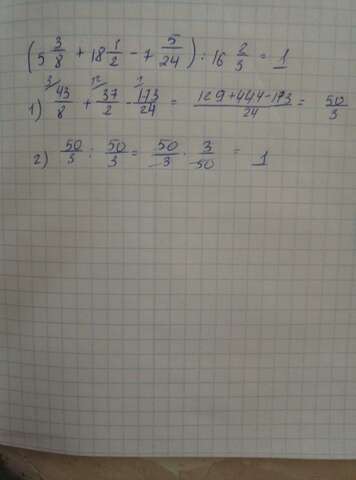 (5 3/8 + 18 1/2 - 7 5/24) : 16 2/3 = 1
1) 43/8 ³ + 37/2 ¹² - 173/24 ¹ = 129+444-173/24 = 50/3
2) 50/3 : 50/3 = 50/3 · 3/50 = 1